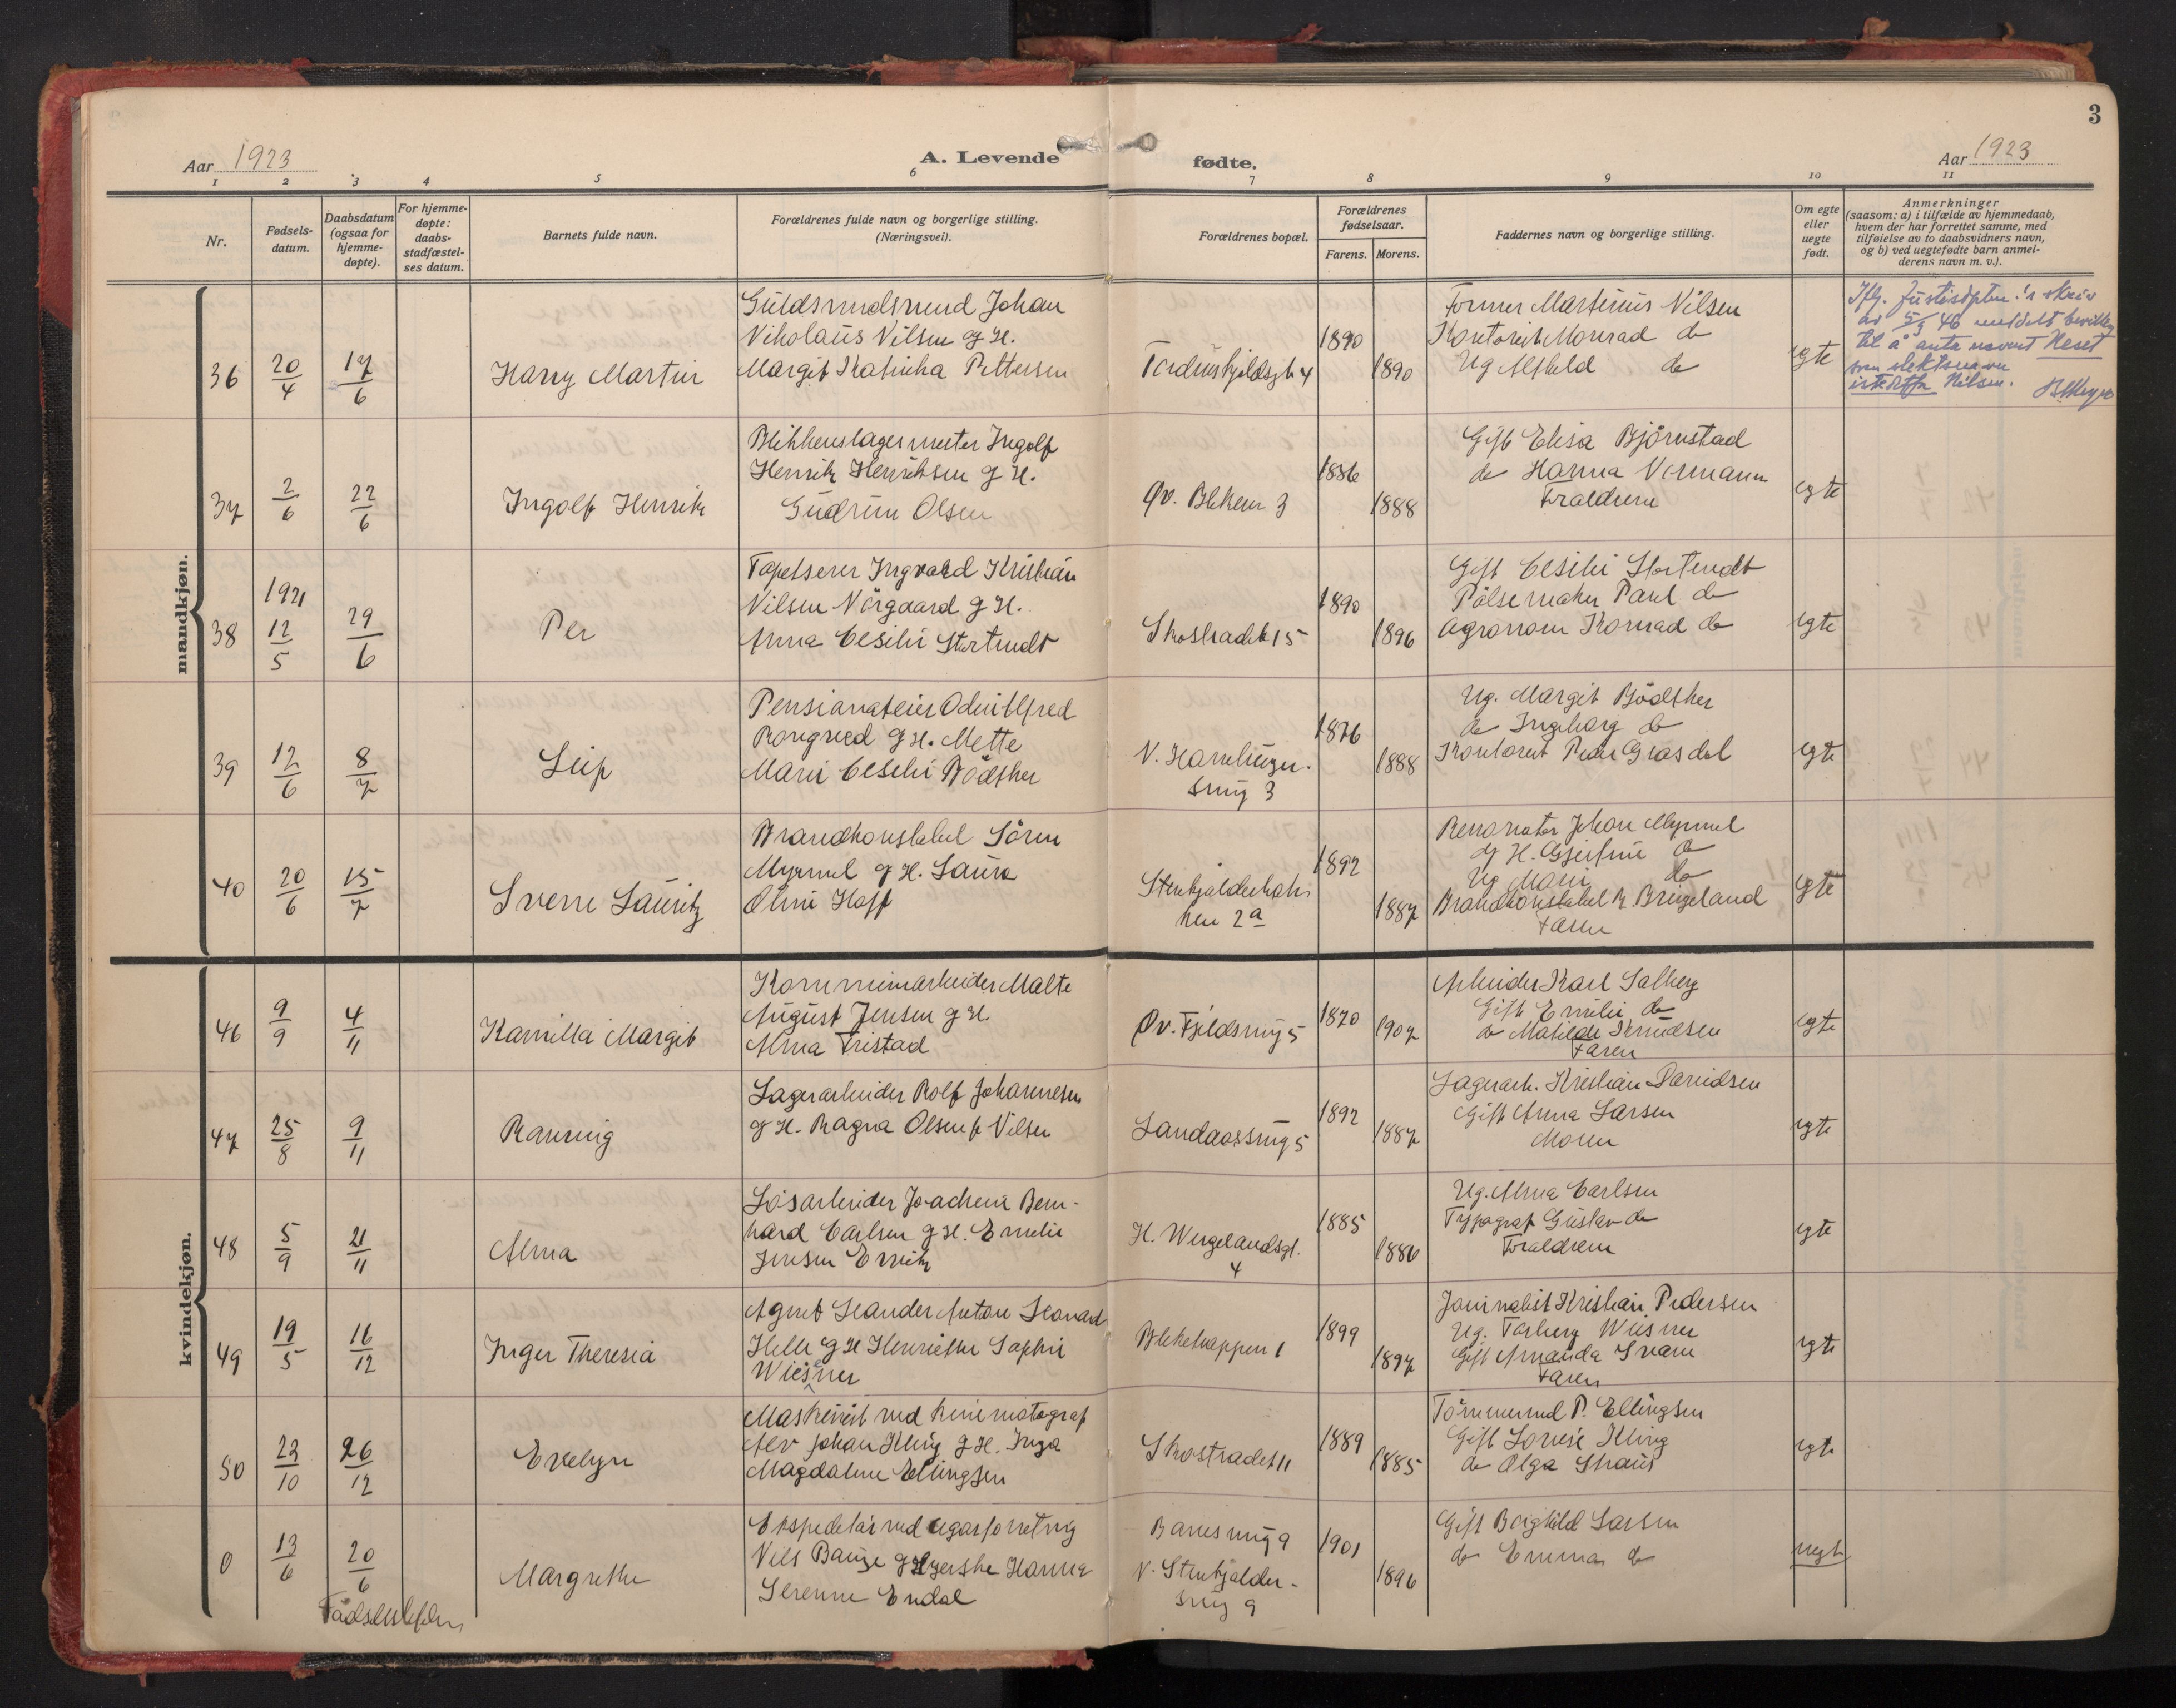 3
Aar 1923
A. Levende fødte.
Aar 1923
1 2 3 4 5 6 7 8 9 10 11
Nr.
Fødsels-
datum.
Daabsdatum
(ogsaa for
hjemme-
døpte).
For hjemme-
døpte:
daabs-
stadfæstel-
ses datum.
Barnets fulde navn.
Forældrenes fulde navn og borgerlige stilling.
(Næringsvei).
Forældrenes bopæl.
Forældrenes
fødselsaar.
Farens. Morens.
Faddernes navn og borgerlige stilling.
Om egte
eller
uegte
født.
Anmerkninger
(saasom: a) i tilfælde av hjemmedaab,
hvem der har forrettet samme, med
tilføielse av to daabsvidners navn,
og b) ved uegtefødte barn anmel-
derens navn m. v.).
mandkjøn.
36
20/4
17/6
Harry Martin
Guldsmedsvend Johan
Nikolaus Nilsen g H.
Margit Katinka Pettersen
Tordenskjoldsgt 4
1890
1890
Former Martinius Nilsen
Kontorist Monrad do
Ug Alfhild do
egte
av 5/3 46 meddelt bevilling
til å anta navnet Neset
som slektsnavn
istedetfor Nilsen.
37
2/6
22/6
Ingolf Henrik
Blikkenslagermester Ingolf
Henrik Henriksen g H.
Gudrun Olsen
Øv. Blekevn 3
1886
1888
Gift Elisa Bjørnstad
do Hanna
Forældrene
egte
38
1921
12/5
29/6
Per
Tapetserer Ingvald Kristian
Nilsen Nörgaard g H.
Anna Cesilie
Skostrædet 15
1890
1896
Gift Cesilie
Pölsemaker Paul do
Agronom Konrad do
egte
39
12/6
8/7
Leif
Pensionateier Odin Alfred
g H. Mette
Marie Cesilie Bödtker
V.
smug 3
1876
1888
Ug. Margit Bödtker
do Ingeborg do
Kontorist Peder Grasdal
egte
40
20/6
15/7
Sverre Lauritz
Brandkonstabel Sören
Myrmel g H. Laura
Oline Hoff
nen 2a
1892
1887
Renovatør Johan Myrmel
og H. Gjertine do
Ug Marie do
Brandkonstabel R. Bringeland
Faren
egte
kvindekjøn.
46
9/9
4/11
Kamilla Margit
Kommunearbeider Malte
August Jensen g H.
Alma Fristad
Øv. Fjeldsmug 5
1870
1907
Arbeider Karl Salberg
Gift Emilie do
do Matilde Knudsen
Faren
egte
47
25/8
9/11
Ranveig
Lagerarbeider Rolf Johannesen
g H. Ragna Olsen f Nilsen
Landaassmug 5
1892
1887
Lagerarb. Kristian Davidsen
Gift Anna Larsen
Moren
egte
48
5/9
21/11
Alma
Lösarbeider Joachim Bern-
hard Carlsen g H. Emelie
Jensen
H. Wergelandsgt.
4
1885
1886
Ug. Alma Carlsen
Typograf Gustav do
Forældrene
egte
49
19/5
16/12
Inger Theresia
Agent Leander Anton Leonard
Helle g H Henriette Sophie
Wiesner
1899
1897
Journalist Kristian Pedersen
Ug. Torberg Wiesner
Gift Amanda Svane
Faren
egte
50
23/10
26/12
Evelyn
Maskinist ved kinematograf
Alv Johan Kling g H. Inga
Magdalene Ellingsen
Skostrædet 11
1889
1885
Tömmermd P. Ellingsen
Gift Lovise Kling
do Olga
egte
0
13/6
20/6
Margrethe
Ekspeditör ved cigarforretnig
Nils Bauge og Syerske Hanna
Serenne Endal
9
V. Stenkjelder-
smug 9
1901
1896
Gift Borghild Larsen
do Emma do
uegt